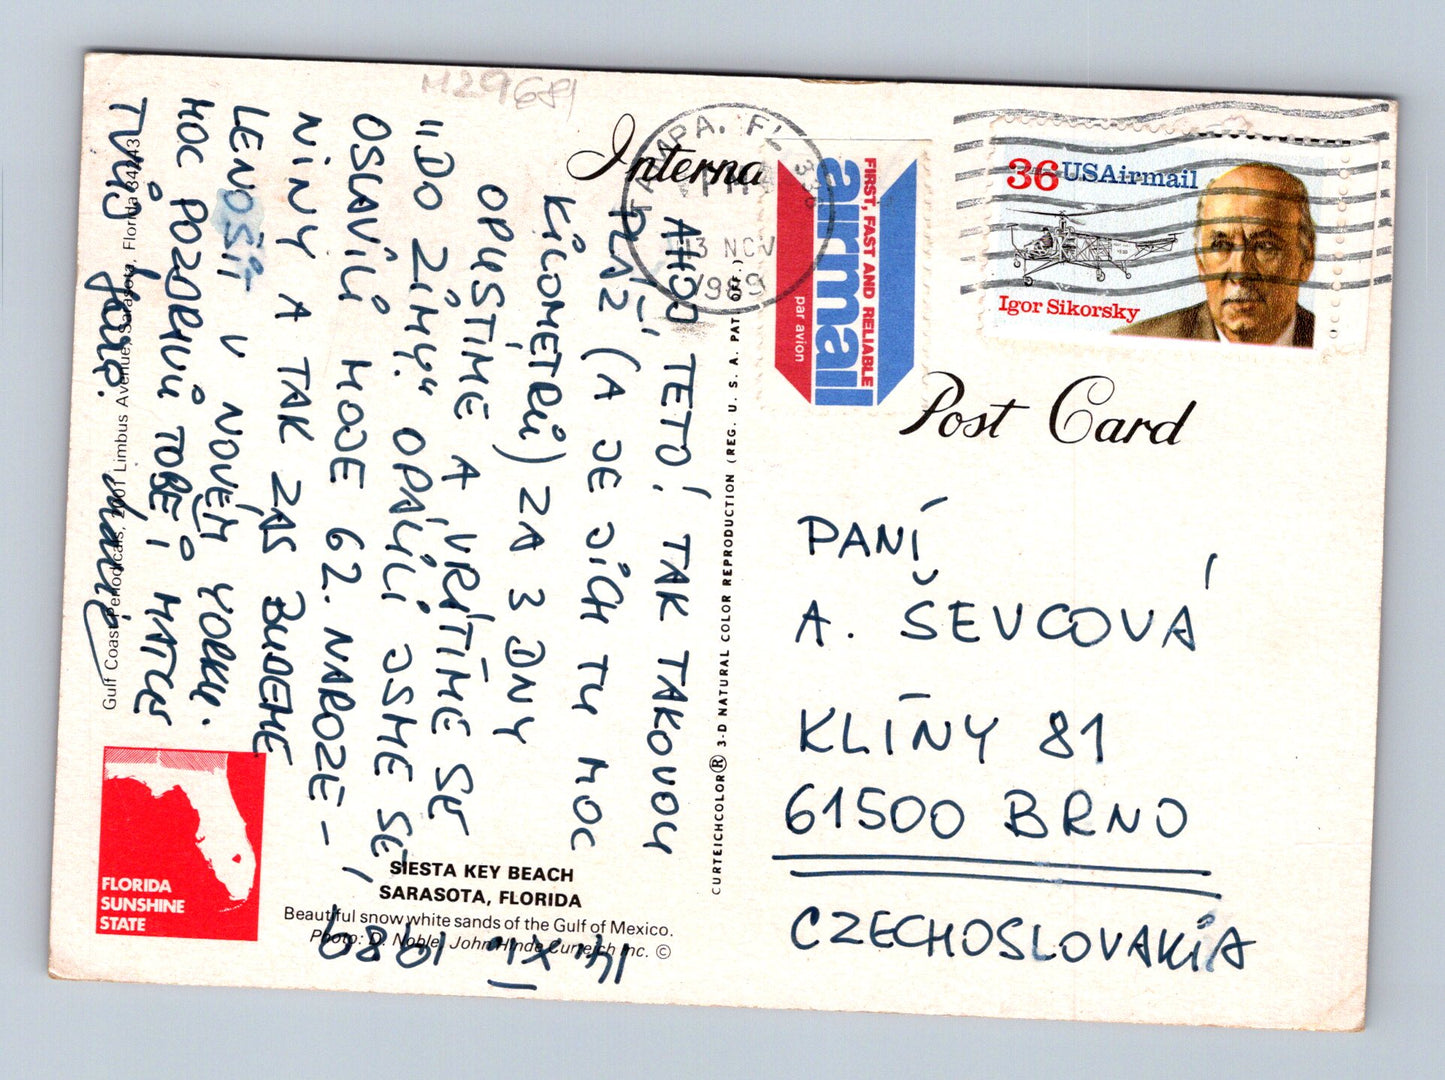 M29681
"AHOJ, TETO! TAK TAKOVOU
PLÁŽ (A JE JICH TU MOC
KILOMETRŮ) ZA 3 DNY
OPUSTÍME A VRÁTÍME SE
"DO ZIMY". OPÁLILI JSME SE,
OSLAVILI MOJE 62. NAROZE-
NINY A TAK ZAS BUDEME
LENOŠIT V NOVÉM YORKU.
MOC POZDRAVŮ TOBĚ I MATCE
TVŮJ
14. XI. 1989
Gulf Coast Periodicals, 2001 Limbus Avenue, Sarasota, Florida 34243
FLORIDA
SUNSHINE
STATE
SIESTA KEY BEACH
SARASOTA, FLORIDA
Beautiful snow white sands of the Gulf of Mexico.
Photo: D. Noble, John Hinde Curteich Inc. ©
CURTEICHCOLOR® 3-D NATURAL COLOR REPRODUCTION (REG. U. S. A. PAT. OFF.)
Interna
Post Card
TAMPA, FL
PM
13 NOV
1989
FIRST, FAST AND RELIABLE
airmail
par avion
36 USAirmail
Igor Sikorsky
PANÍ
A. ŠEVCOVÁ
KLÍNY 81
61500 BRNO
CZECHOSLOVAKIA